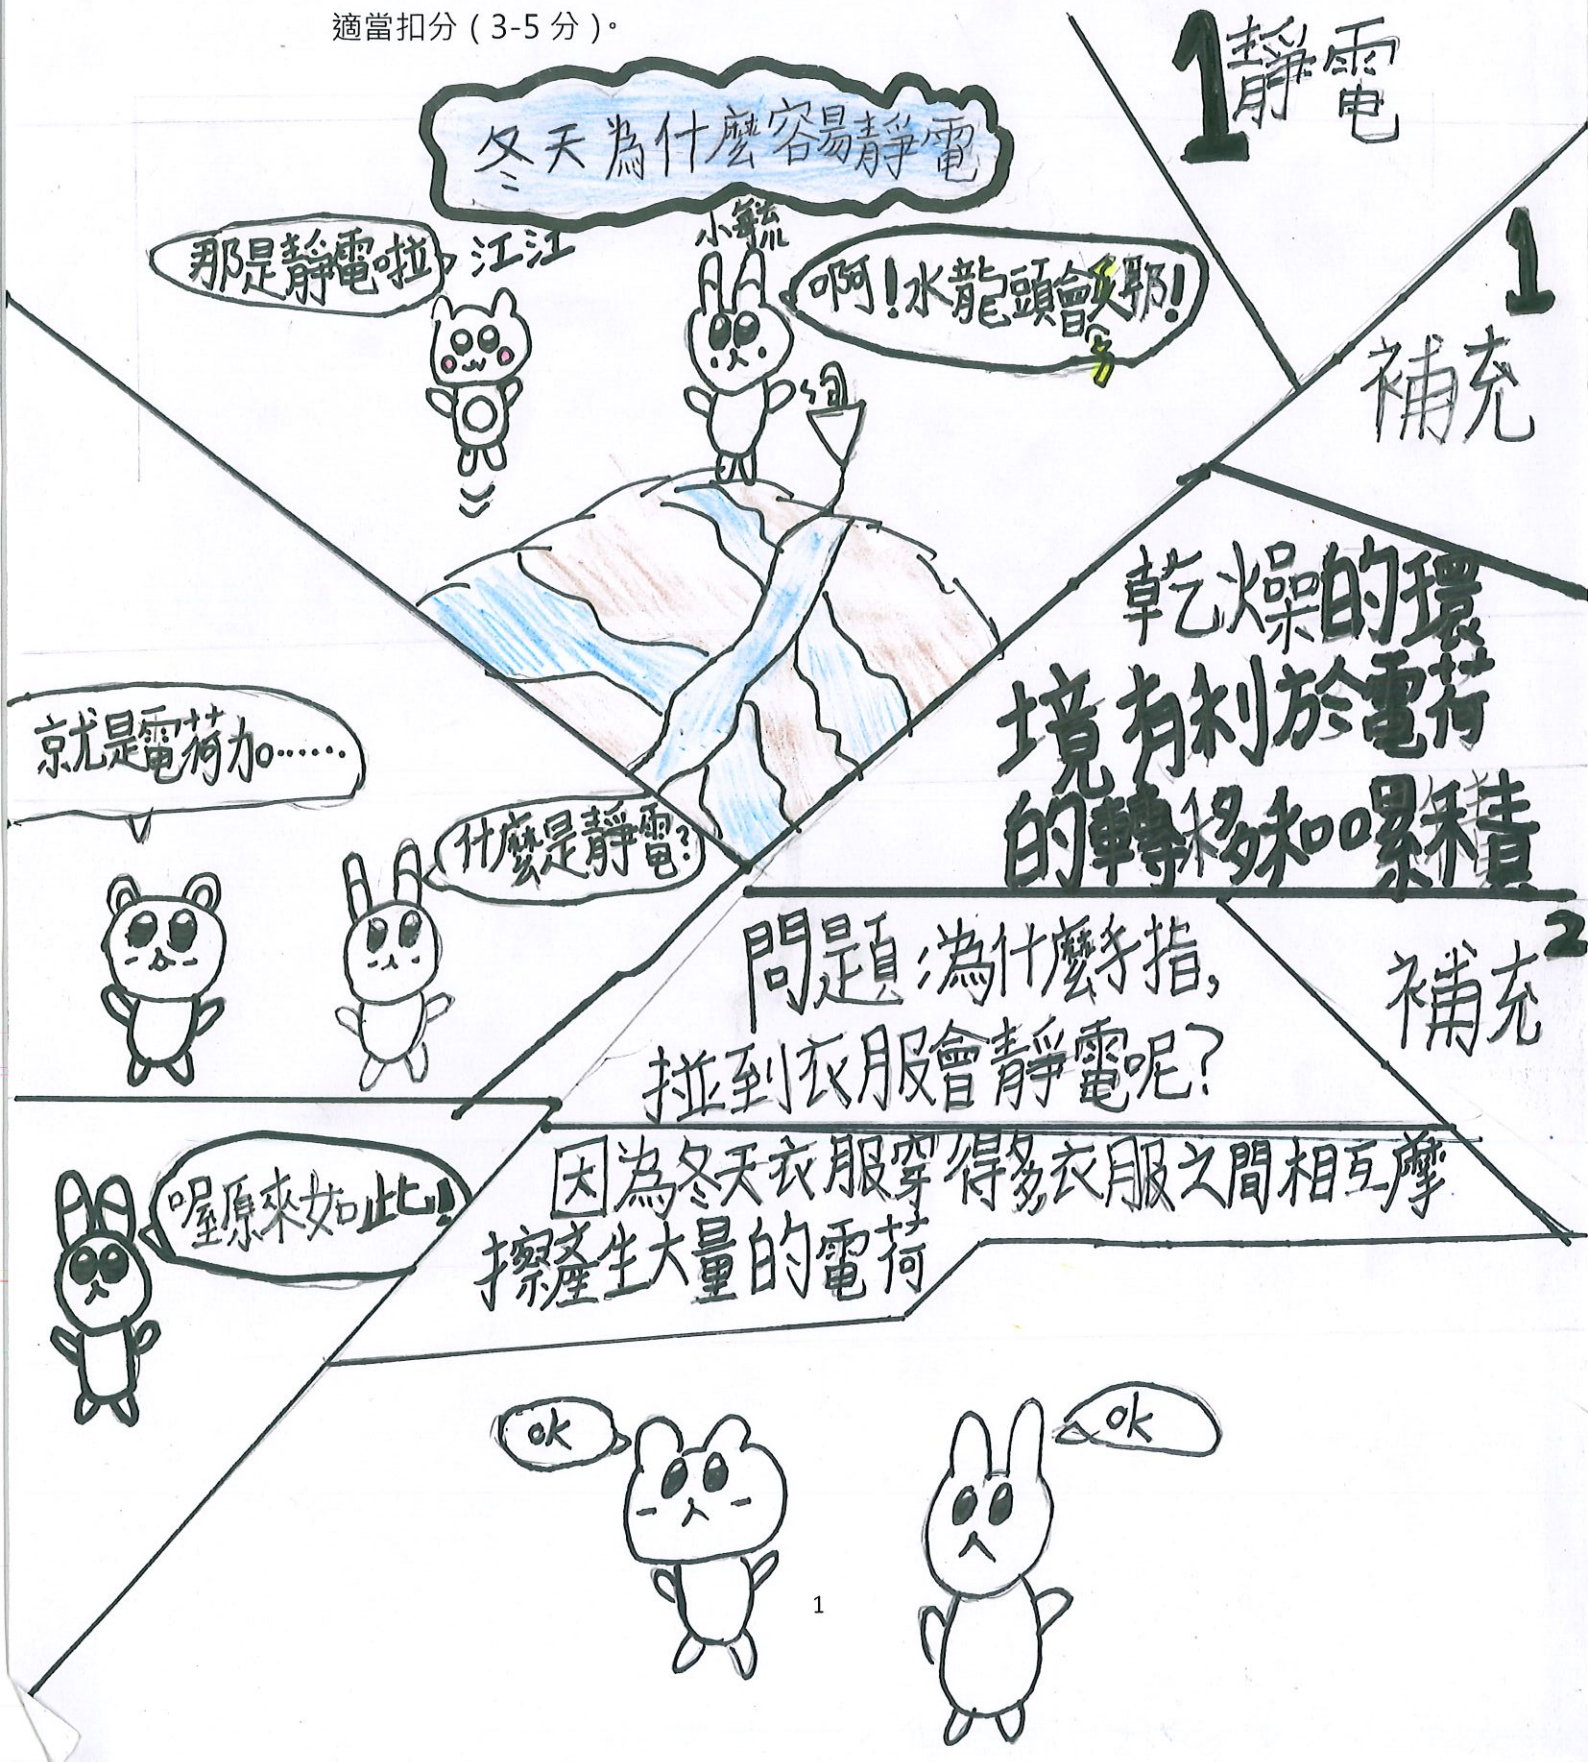 適當扣分(3-5分)。
1靜電
冬天為什麼容易靜電
那是靜電啦
江江
小毓
啊!水龍頭會
耶!
1
補充
乾燥的環
境有利於電荷
的轉移和累積
就是電荷加……
什麼是靜電?
2
補充
問題:為什麼手指,
碰到衣服會靜電呢?
因為冬天衣服穿得多,衣服之間相互摩
擦產生大量的電荷
喔原來如此!
ok
ok
1